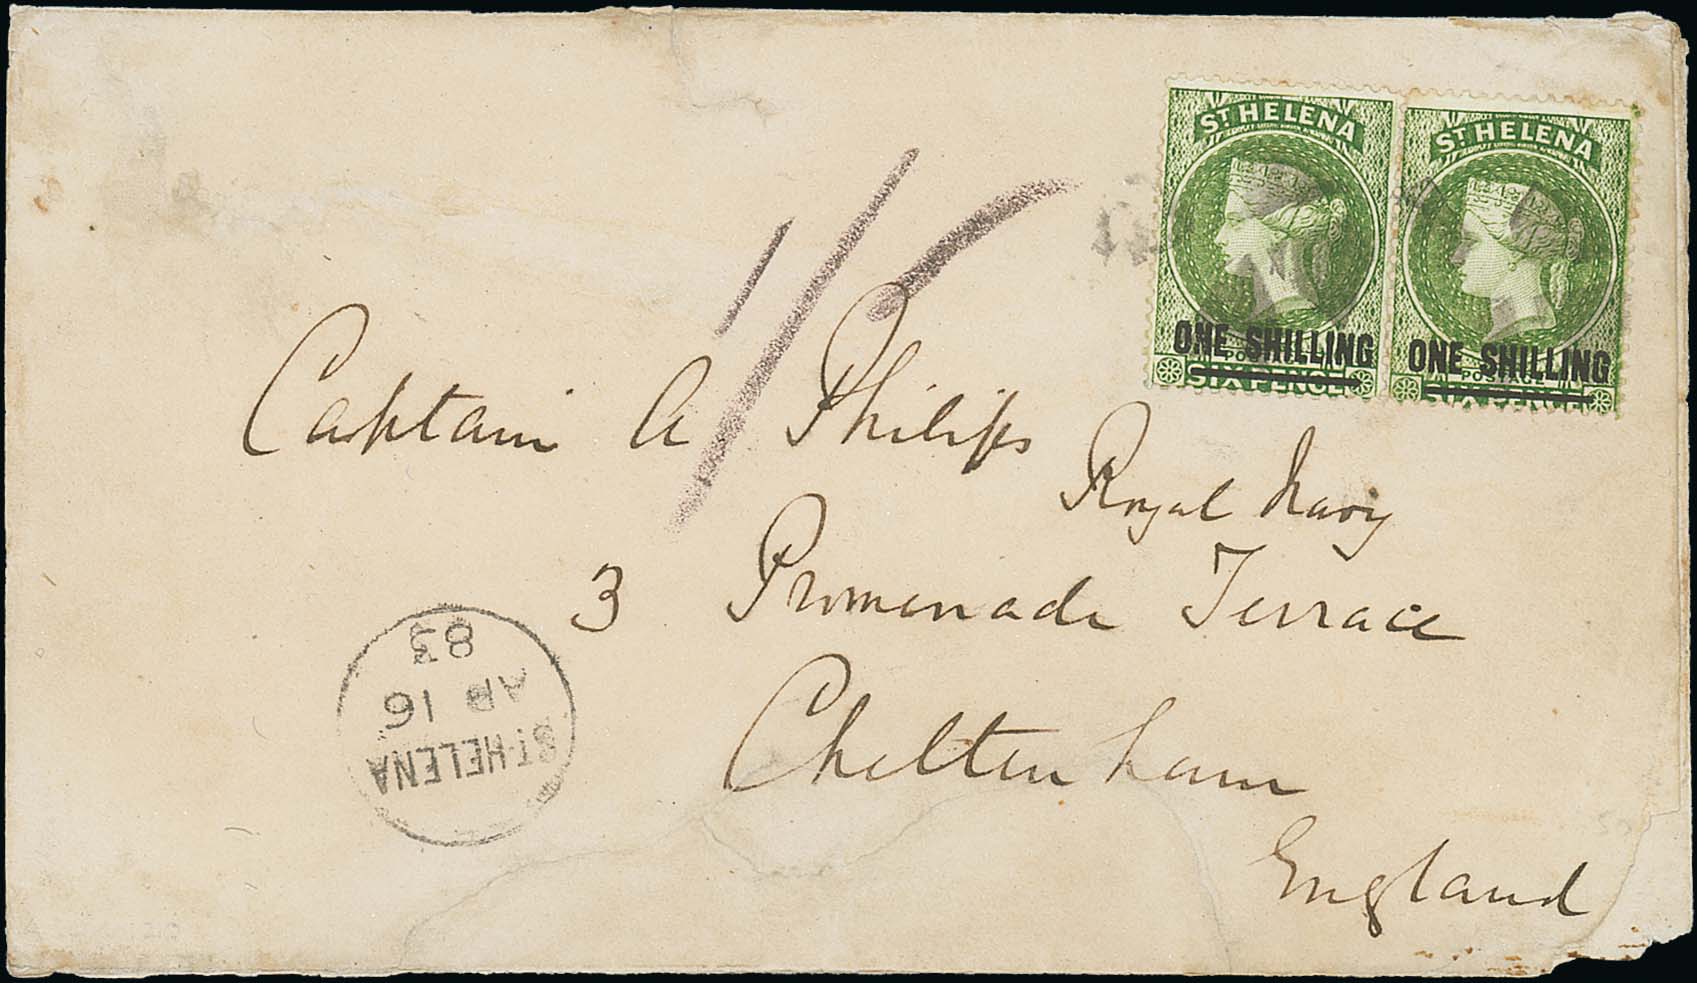 ST HELENA
POSTAGE
ONE SHILLING
SIXPENCE
ST HELENA
POSTAGE
ONE SHILLING
SIXPENCE
1/
Captain A Philipps
Royal Navy
3 Promenade Terrace
Cheltenham
England
ST. HELENA
AP 16
83